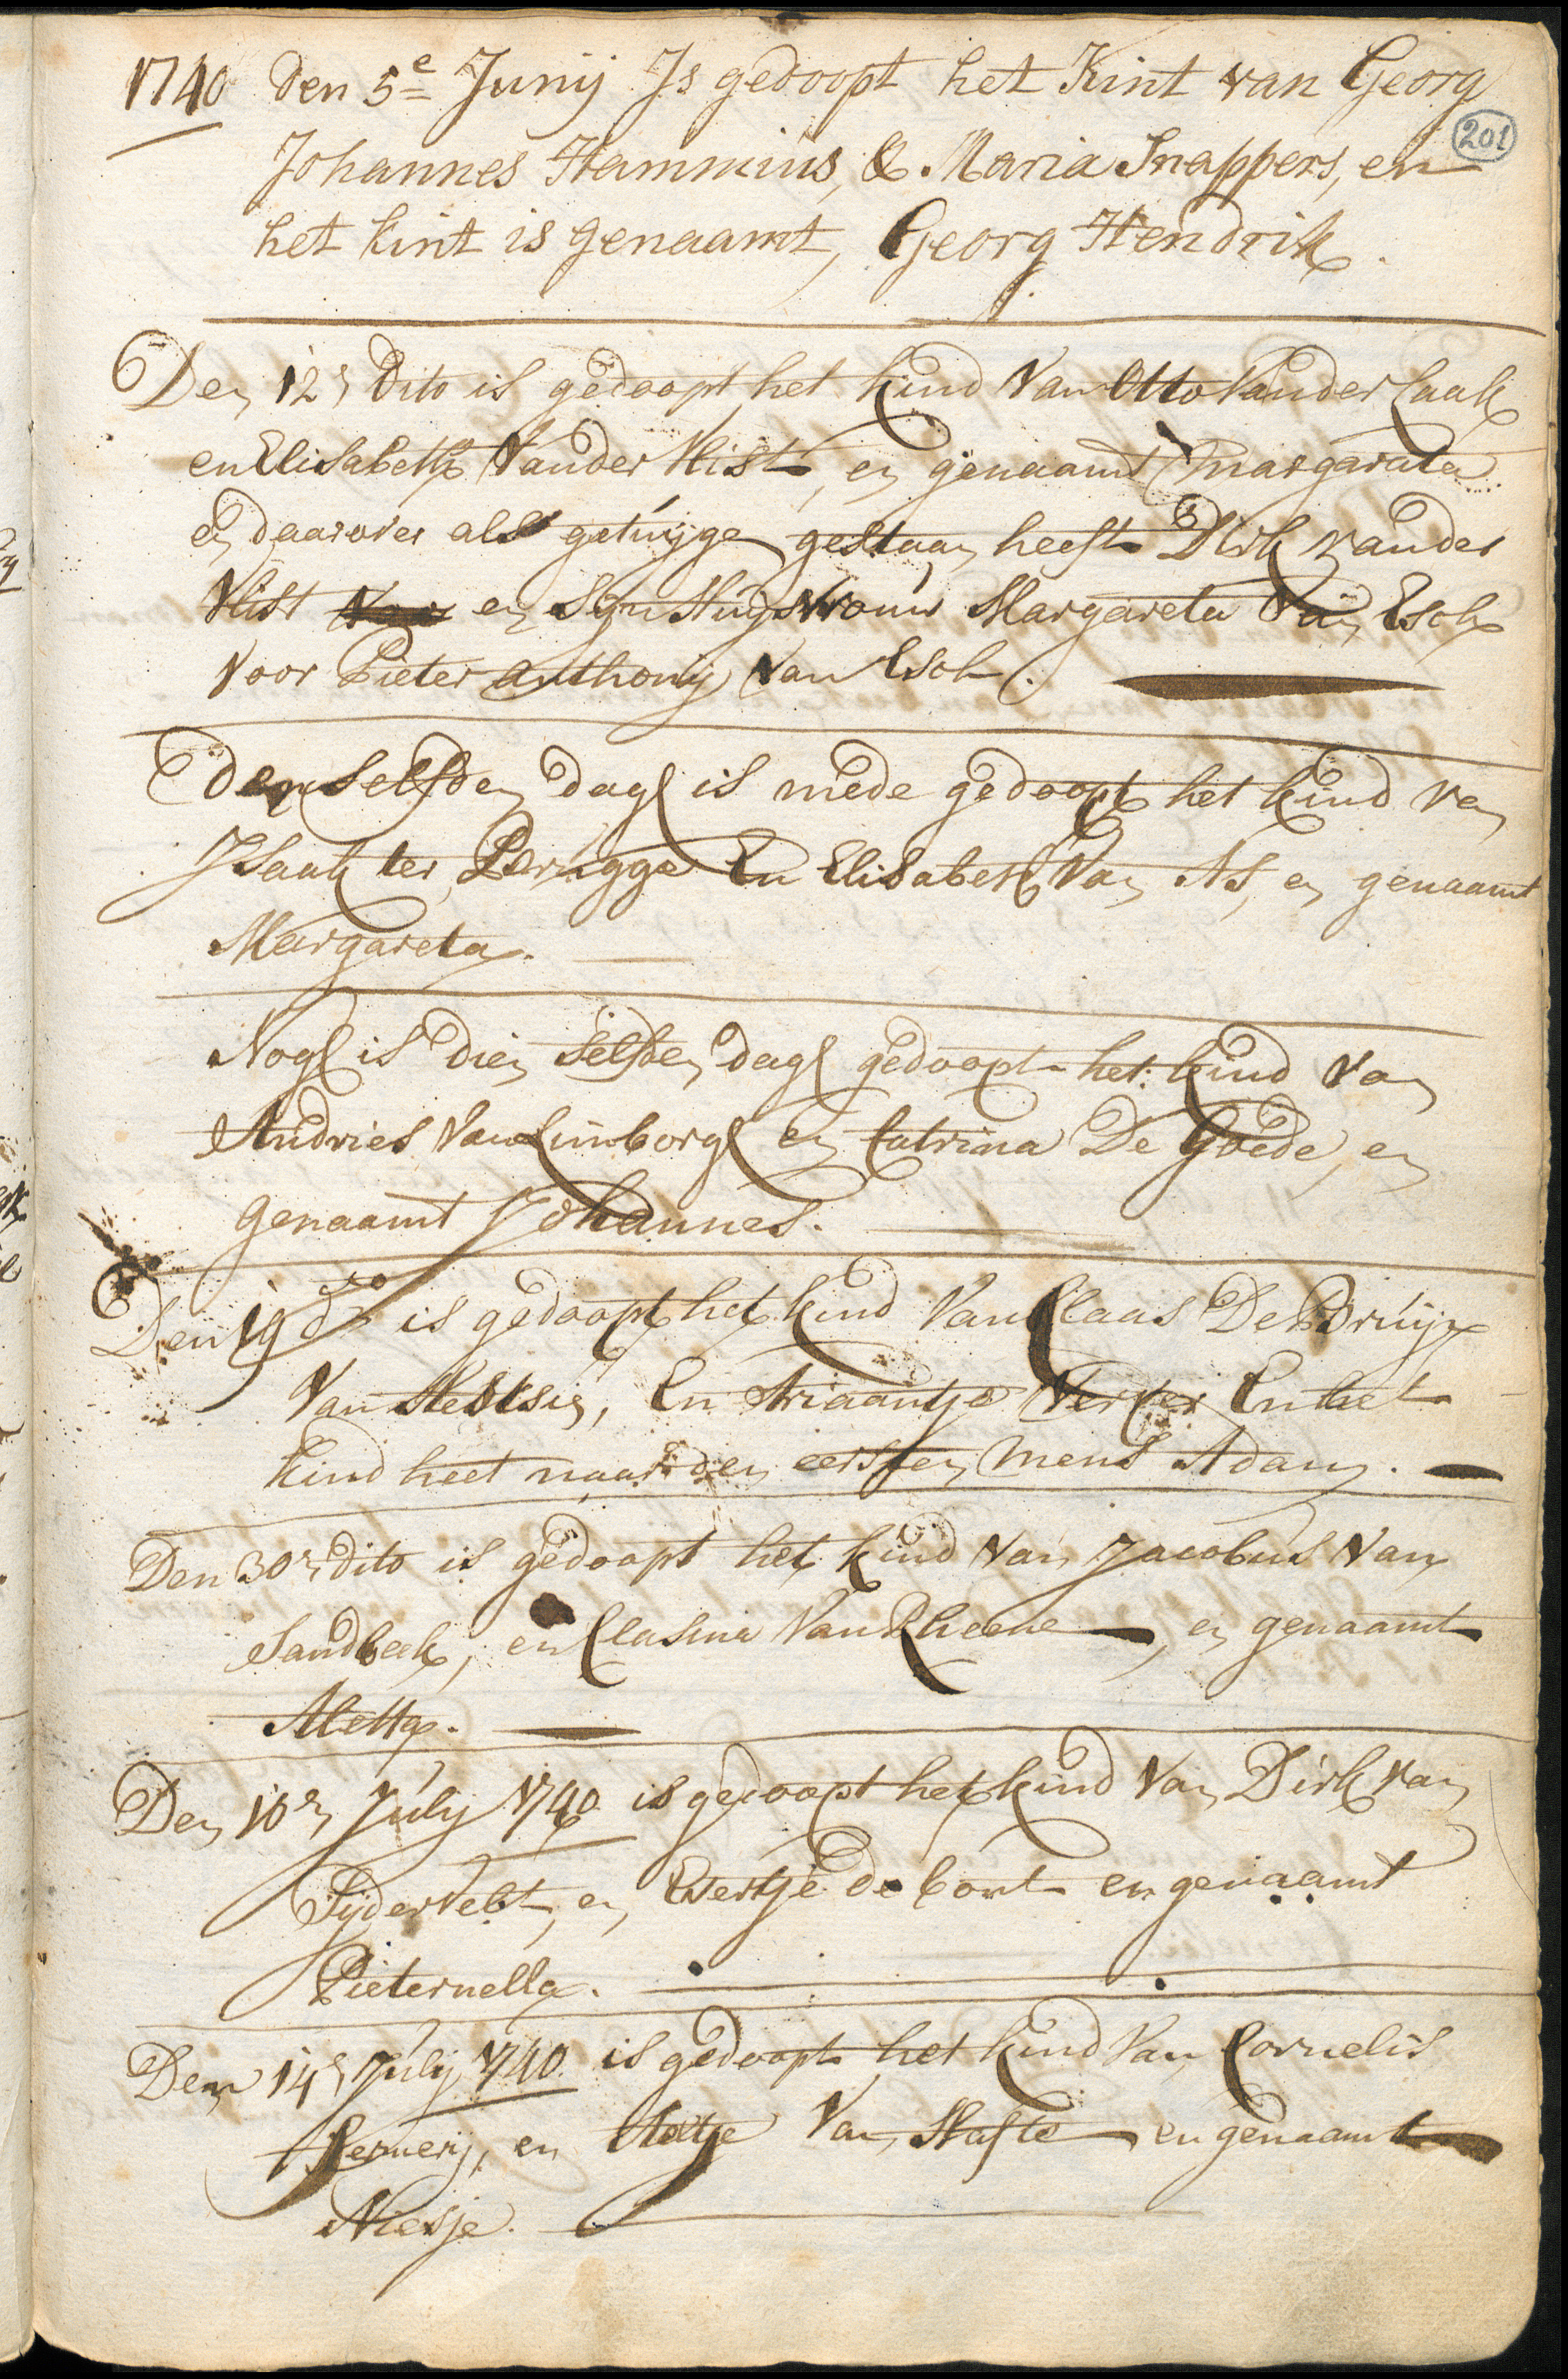 1740 den 5e Junij Is gedoopt het Kint van Georg
201
Johannes Hammius, & Maria Snappers, en
het kint is genaamt, Georg Hendrik.
Den 12n Dito is gedoopt het kind Van Otto Vander Laak
en Elisabeth Vander Vlist, en genaamt Margarata
en daarover als getuijge gestaan heeft Dirk vander
Vlist en Sijn Huijsvrouw Margareta Van Esch
voor Pieter Anthonij Van Esch.
Denselfden dagh is mede gedoopt het kind van
Isaak ter Brugge En Elisabeth Van As, en genaamt
Margareta.
Nogh is dien selfden dagh gedoopt het kind Van
Andries Van Limborgh en Catrina De Goede, en
genaamt Johannes.
Den 19 do is gedoopt het kind Van Claas De Bruijn
Van, En Ariaantje En het
kind heet naar den eersten mens Adam.
Den 30n dito is gedoopt het kind Van Jacobus Van
Sandbeek, en Clasina Van Rheene, en genaamt
Aletta.
Den 10n July 1740 is gedoopt het kind Van Dirk van
Sijdervelt, en Evertje de Cort en genaamt
Pieternella.
Den 14n Julij 1740 is gedoopt het kind Van Cornelis
en Aeltje Van Hafte en genaamt
Niesje.